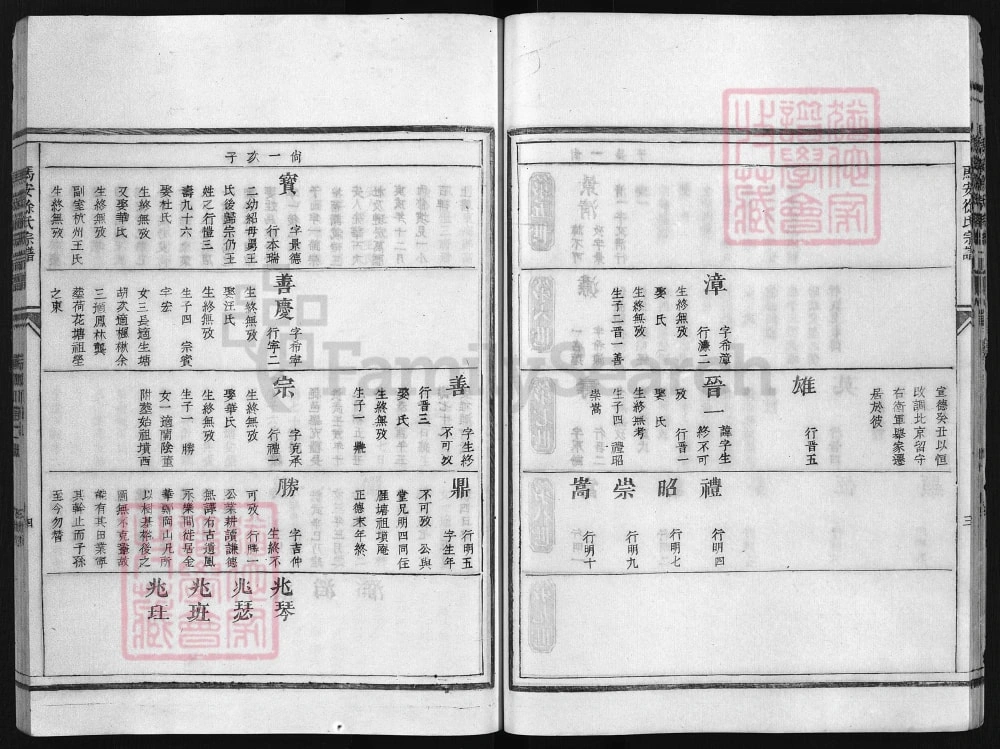 馬安徐氏宗譜
三
漳
字希漳
行濂二
生終無攷
娶 氏
生終無攷
生子二晋一善
宣德癸丑以恒
改調北京留守
右衛軍舉家遷
居於彼
雄
行晋五
晉一
諱字生
終不可
攷 行晋一
娶 氏
生終無考
生子四 禮昭
崇嵩
禮
行明四
昭
行明七
崇
行明九
嵩
行明十
尙一亥子
寶
字景德
行本瑞
二幼紹母勇王
氏後歸宗仍王
姓乙行禮三
壽九十六
娶杜氏
生終無攷
又娶華氏
生終無攷
副室杭州王氏
生終無攷
善慶
字希寧
行寧二
生終無攷
娶汪氏
生終無攷
生子四 宗寳
宇宏
女三長適生塘
胡次適楓楸余
三適鳳林龔
塟荷花塘祖塋
之東
善
字生終
不可攷
行晋三
娶 氏
生終無攷
生子一 鼎
宗
字克承
行禮一
生終無攷
娶華氏
生終無攷
生子一 勝
女一適蘭陰童
附塟始祖墳西
鼎
行明五
字生年
不可攷 公與
堂兄明四同住
厓塘祖項庵
正德末年終
勝
字吉仲
生終不
可攷 行勝一
公業耕讀謙德
無譯有古遺風
永樂間徙居金
華
以
至今勿替
兆琴
兆瑟
兆班
兆玨
馬安徐氏宗譜
四
FamilySearch